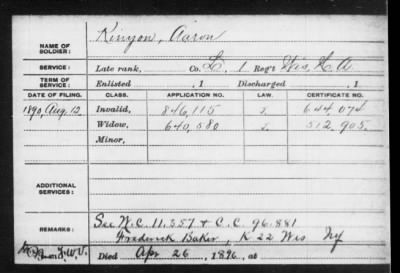 NAME OF SOLDIER: Kinyon, Aaron
SERVICE: Late rank, Co. L, 1 Reg't Wis. H. A
TERM OF SERVICE: Enlisted , 1 Discharged , 1
DATE OF FILING. CLASS. APPLICATION NO. LAW. CERTIFICATE NO.
1890, Aug. 12 Invalid, 846,115 644,074
Widow, 640,580 512,905.
Minor,
ADDITIONAL SERVICES:
REMARKS: See W.C. 11.357 & C.C. 96.881
Frederick Baker, K 22 Wis Ny
Died Apr 26, 1896, at